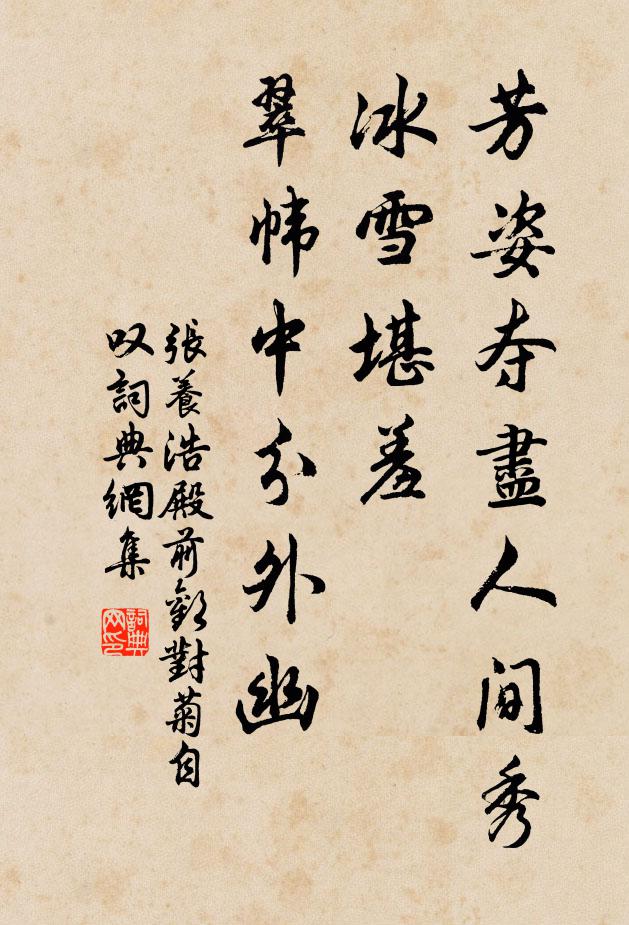 芳姿夺盡人間秀
冰雪堪羞
翠幃中分外幽
張養浩殿前歡對菊自
叹詞典網集
詞典
网印